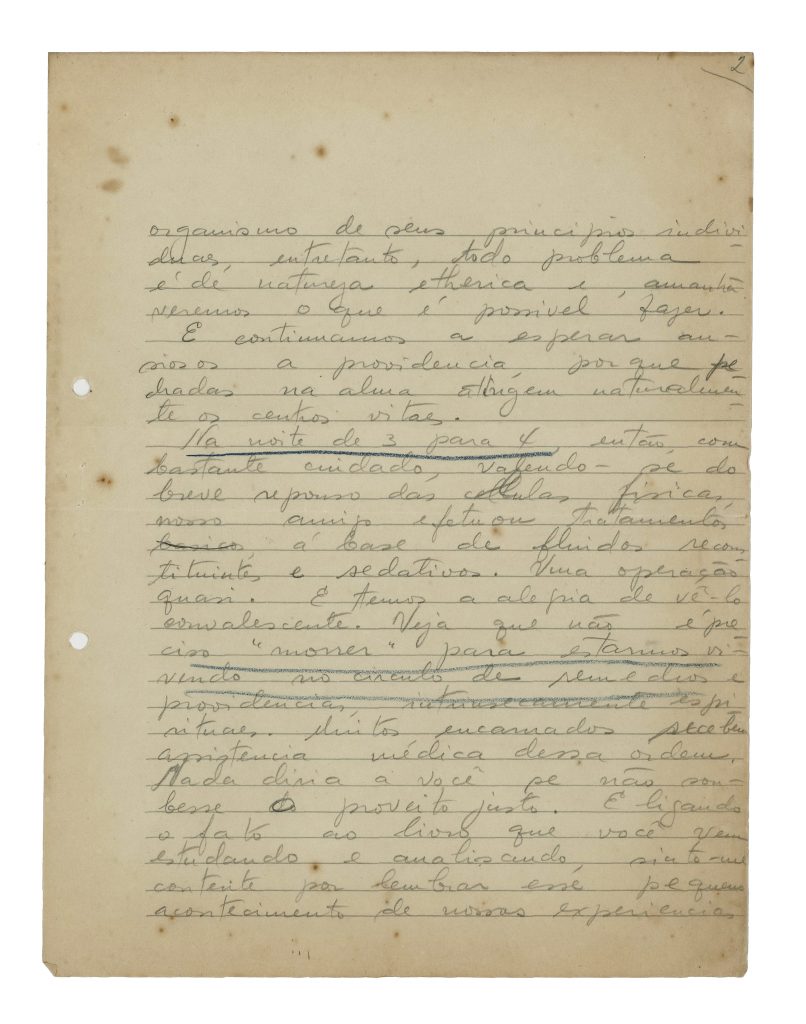 2
organismo de seus principios indivi-
duaes, entretanto, todo problema
é de natureza etherica e, amanhã
veremos o que é possivel fazer.
E continuamos a esperar an-
siosos a providencia, porque pe
dradas na alma attingem naturalmen-
te os centros vitaes.
Na noite de 3 para 4, então, com
bastante cuidado, valendo-se do
breve repouso das cellulas fisicas,
nosso amigo efetuou tratamentos
basicos, á base de fluidos recons
tituintes e sedativos. Uma operação
quasi. E temos a alegria de vê-lo
convalescente. Veja que não é pre-
ciso "morrer" para estarmos vi-
vendo no circulo de remedios e
providencias intrinsecamente espi
rituaes. Muitos encarnados recebem
assistencia médica dessa ordem.
Nada diria a você se não sou-
besse do proveito justo. E ligando
o fato ao livro que você vem
estudando e analisando, sinto-me
contente por lembrar esse pequeno
acontecimento de nossas experiencias